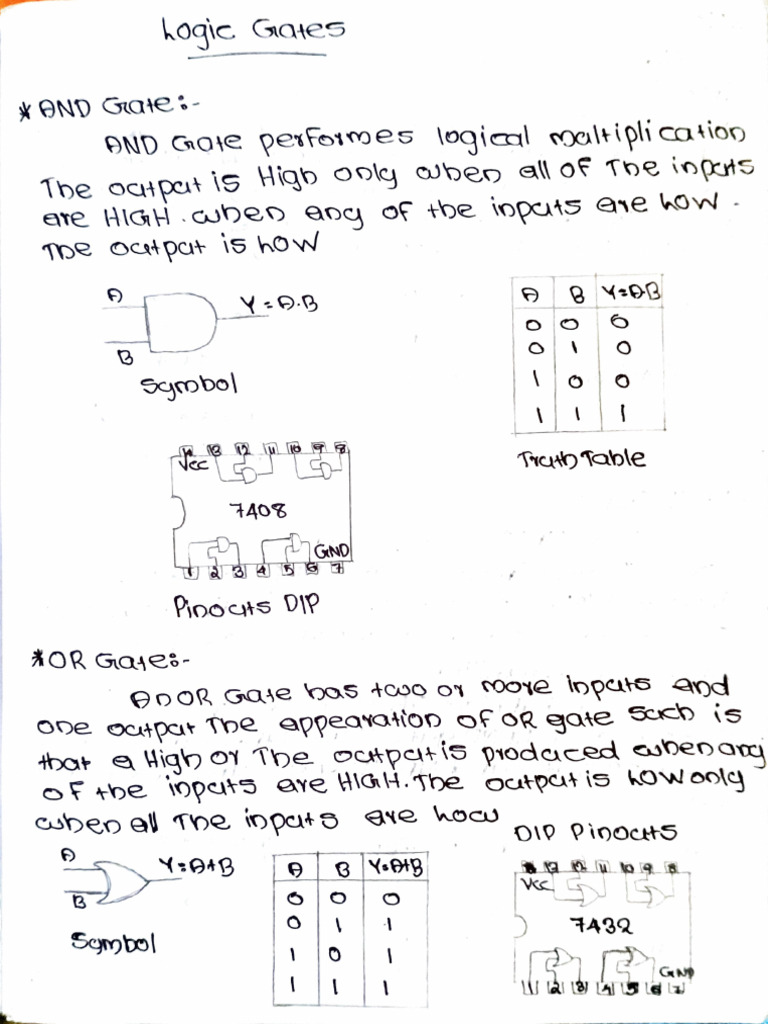 Logic Gates
* AND Gate:-
AND Gate performes logical multiplication
The output is High only when all of The inputs
are HIGH. when any of the inputs are Low.
The output is Low
A
B
Y = A.B
Symbol
A B Y=A.B
0 0 0
0 1 0
1 0 0
1 1 1
Truth Table
14 13 12 11 10 9 8
Vcc
7408
GND
1 2 3 4 5 6 7
Pinouts DIP
* OR Gate:-
An OR Gate has two or more inputs and
one output The appearation of OR gate such is
that a High or The output is produced when any
of the inputs are HIGH. The output is Low only
when all The inputs are Low
A
B
Y=A+B
Symbol
A B Y=A+B
0 0 0
0 1 1
1 0 1
1 1 1
DIP Pinouts
13 12 11 10 9 8
Vcc
7432
GND
1 2 3 4 5 6 7